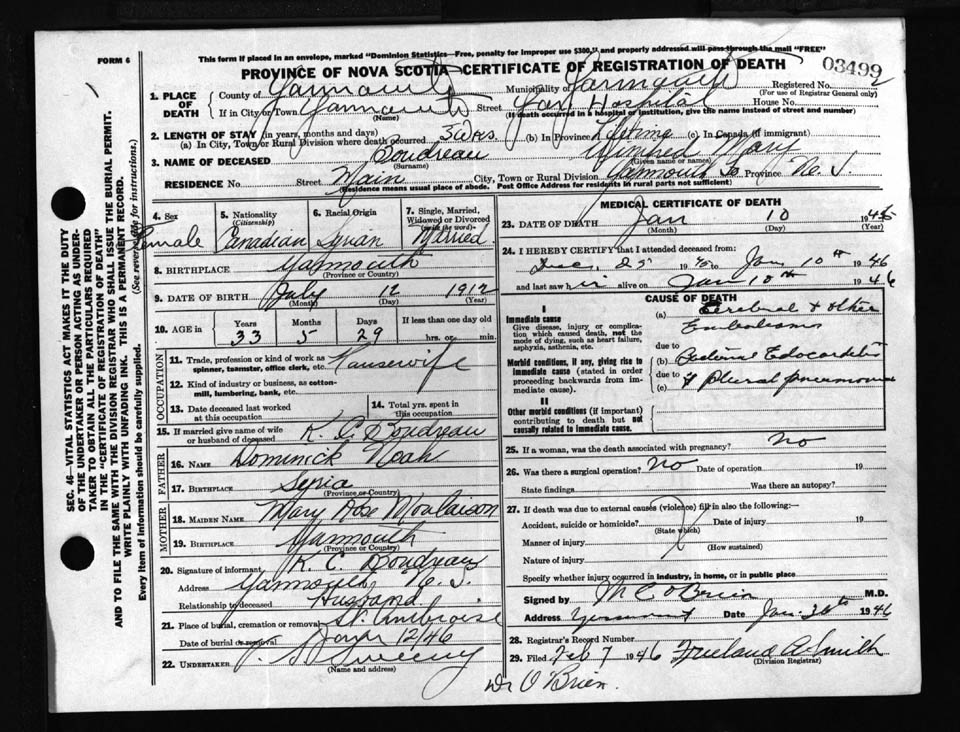 FORM 6
This form if placed in an envelope, marked "Dominion Statistics—Free, penalty for improper use $300," and properly addressed will pass through the mail "FREE"
PROVINCE OF NOVA SCOTIA—CERTIFICATE OF REGISTRATION OF DEATH
03499
1. PLACE OF DEATH { County of Yarmouth Municipality of Yarmouth Registered No.
(For use of Registrar General only)
If in City or Town Yarmouth Street Yar Hospital House No.
(Name) (If death occurred in a hospital or institution, give the name instead of street and number)
2. LENGTH OF STAY (in years, months and days)
(a) In City, Town or Rural Division where death occurred 3 wks. (b) In Province Lifetime (c) In Canada (if immigrant)
3. NAME OF DECEASED Boudreau Winifred Mary
(Surname) (Given name or names)
RESIDENCE No. Street Main City, Town or Rural Division Yarmouth Province N. S.
(Residence means usual place of abode. Post Office Address for residents in rural parts not sufficient)
4. Sex Female
5. Nationality (Citizenship) Canadian
6. Racial Origin Syrian
7. Single, Married, Widowed or Divorced (write the word) Married
8. BIRTHPLACE Yarmouth
(Province or Country)
9. DATE OF BIRTH July 12 1912
(Month) (Day) (Year)
10. AGE in Years 33 Months 5 Days 29 If less than one day old hrs. or min.
OCCUPATION
11. Trade, profession or kind of work as spinner, teamster, office clerk, etc. Housewife
12. Kind of industry or business, as cotton-mill, lumbering, bank, etc.
13. Date deceased last worked at this occupation
14. Total yrs. spent in this occupation
15. If married give name of wife or husband of deceased K. C. Boudreau
FATHER
16. NAME Dominick Noah
17. BIRTHPLACE Syria
(Province or Country)
MOTHER
18. MAIDEN NAME Mary Rose Moulaison
19. BIRTHPLACE Yarmouth
(Province or Country)
20. Signature of informant K. C. Boudreau
Address Yarmouth, N. S.
Relationship to deceased Husband
21. Place of burial, cremation or removal St. Ambroise
Date of burial or removal 12/46
22. UNDERTAKER Sweeny
(Name and address)
MEDICAL CERTIFICATE OF DEATH
23. DATE OF DEATH Jan 10 1946
(Month) (Day) (Year)
24. I HEREBY CERTIFY that I attended deceased from:
Dec. 25 1945 to Jan 10th 1946
and last saw her alive on Jan 10th 1946
CAUSE OF DEATH
I
Immediate cause
Give disease, injury or complication which caused death, not the mode of dying, such as heart failure, asphyxia, asthenia, etc.
(a) Cerebral & other Embolisms
due to
Morbid conditions, if any, giving rise to immediate cause (stated in order proceeding backwards from immediate cause).
(b)
due to
(c)
II
Other morbid conditions (if important) contributing to death but not causally related to immediate cause.
25. If a woman, was the death associated with pregnancy? No
26. Was there a surgical operation? No Date of operation 19
State findings Was there an autopsy?
27. If death was due to external causes (violence) fill in also the following:
Accident, suicide or homicide? Date of injury 19
(State which)
Manner of injury
(How sustained)
Nature of injury
Specify whether injury occurred in industry, in home, or in public place
Signed by M C O'Brien M.D.
Address Date Jan. 1946
28. Registrar's Record Number
29. Filed Feb 7 1946 Freeland A Smith
(Division Registrar)
Dr O'Brien.
SEC. 46—VITAL STATISTICS ACT MAKES IT THE DUTY
OF THE UNDERTAKER OR PERSON ACTING AS UNDER-
TAKER TO OBTAIN ALL THE PARTICULARS REQUIRED
IN THE "CERTIFICATE OF REGISTRATION OF DEATH"
AND TO FILE THE SAME WITH THE DIVISION REGISTRAR WHO SHALL ISSUE THE BURIAL PERMIT.
WRITE PLAINLY WITH UNFADING INK. THIS IS A PERMANENT RECORD.
Every item of information should be carefully supplied. (See reverse side for instructions.)